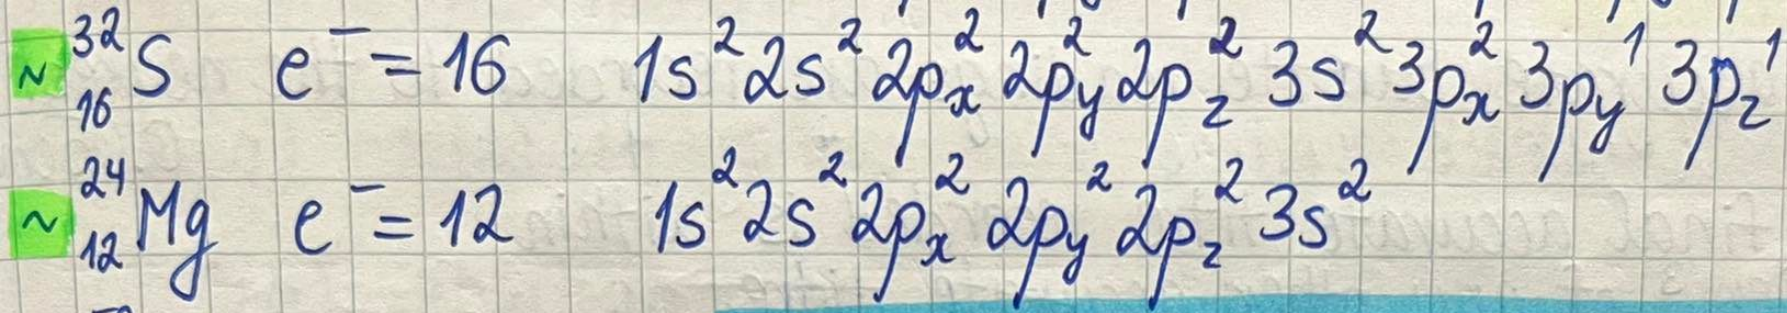 ~ ³²₁₆S e⁻ = 16 1s² 2s² 2pₓ² 2p_y² 2p_z² 3s² 3pₓ² 3p_y¹ 3p_z¹
~ ²⁴₁₂Mg e⁻ = 12 1s² 2s² 2pₓ² 2p_y² 2p_z² 3s²